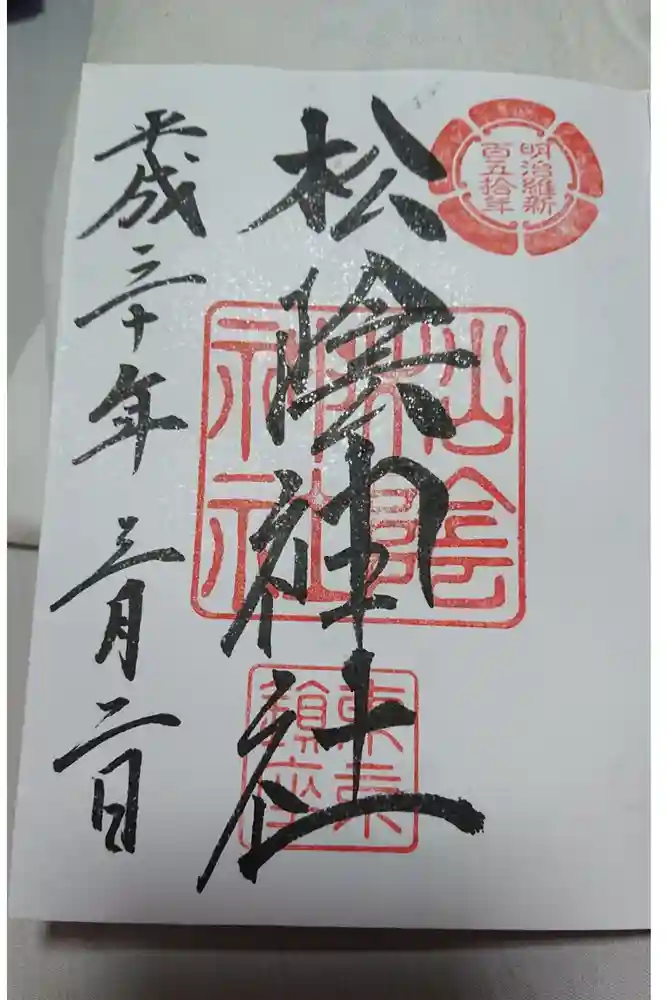 明治維新
百五拾年
松陰神社
松陰神社
東京
鎮座
平成三十年 三月二日